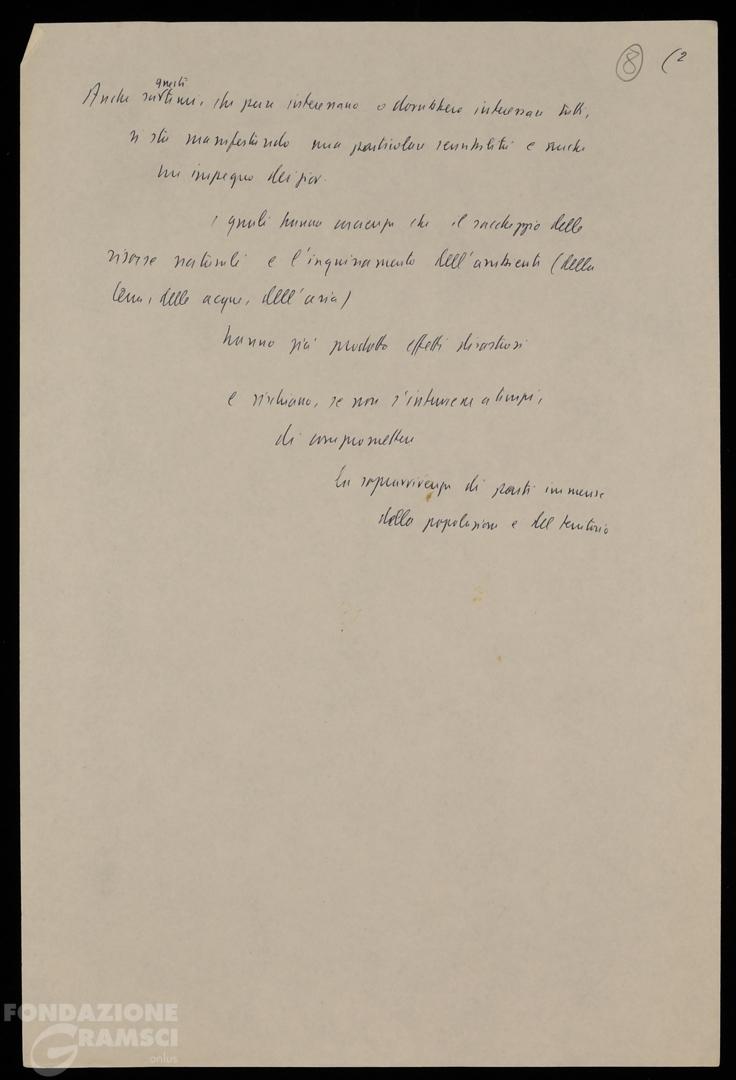 8 (2
questi
Anche su temi, che pure interessano o dovrebbero interessare tutti,
si sta manifestando una particolare sensibilità e anche
un impegno dei giov.
i quali hanno coscienza che il saccheggio delle
risorse naturali e l'inquinamento dell'ambiente (della
terra, delle acque, dell'aria)
hanno già prodotto effetti disastrosi
e rischiano, se non s'interviene a tempo,
di compromettere
la sopravvivenza di parti immense
della popolazione e del territorio
FONDAZIONE
GRAMSCI
onlus